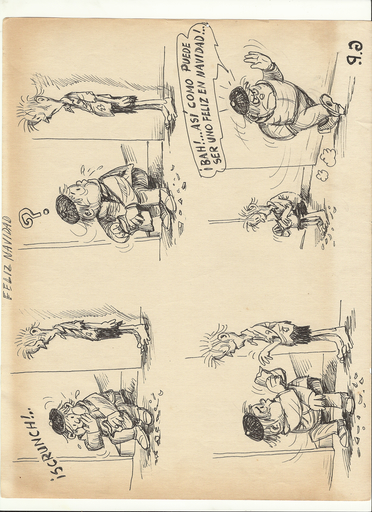 FELIZ NAVIDAD
¡SCRUNCH!..
?
¡BAH!...ASÍ COMO PUEDE
SER UNO FELIZ EN NAVIDAD!...